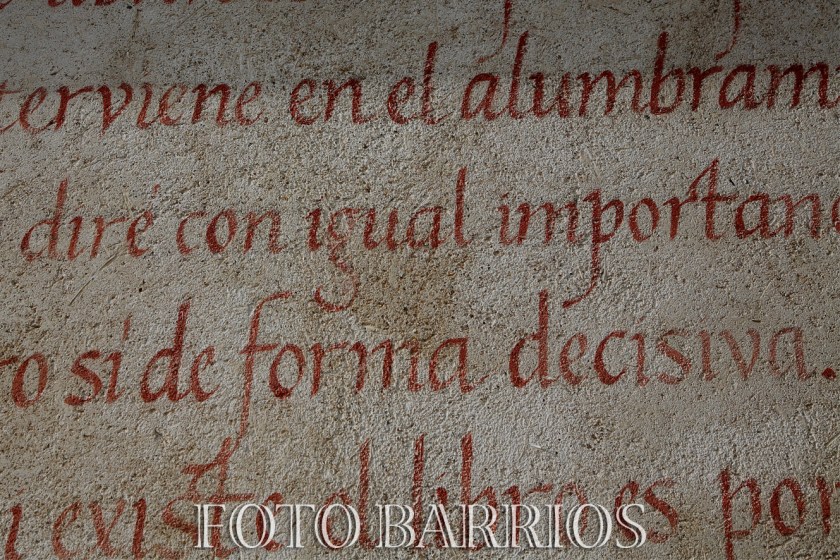 terviene en el alumbram
diré con igual importan
ro si de forma decisiva.
i existe el libro es por
FOTO BARRIOS